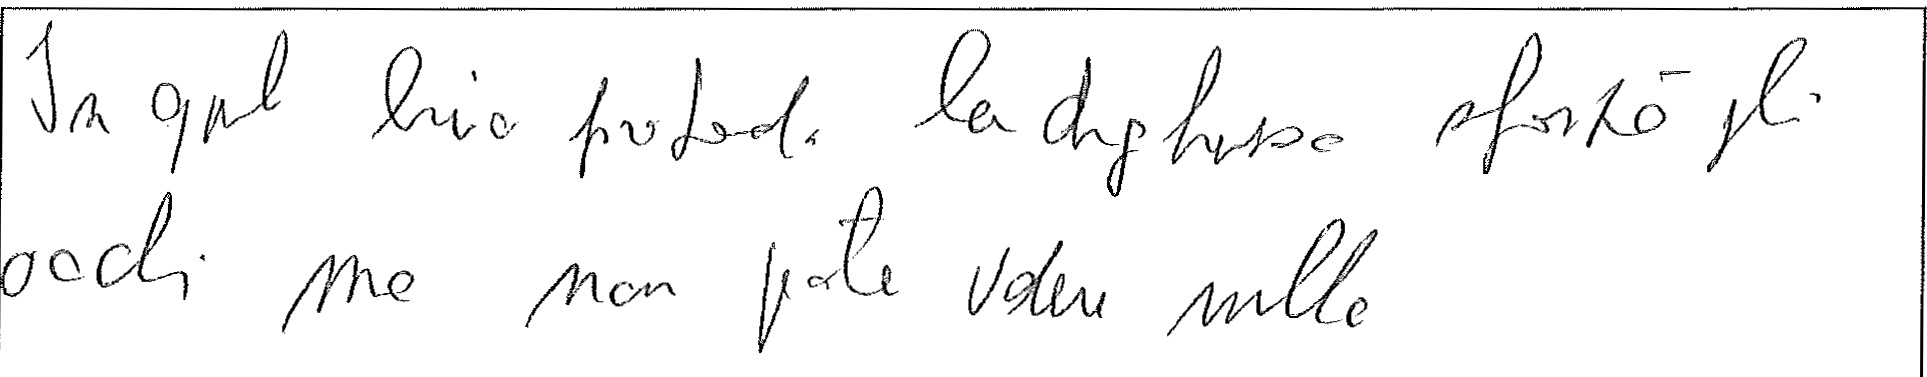 In quel buio profondo la duchessa sforzò gli
occhi ma non poté vedere nulla